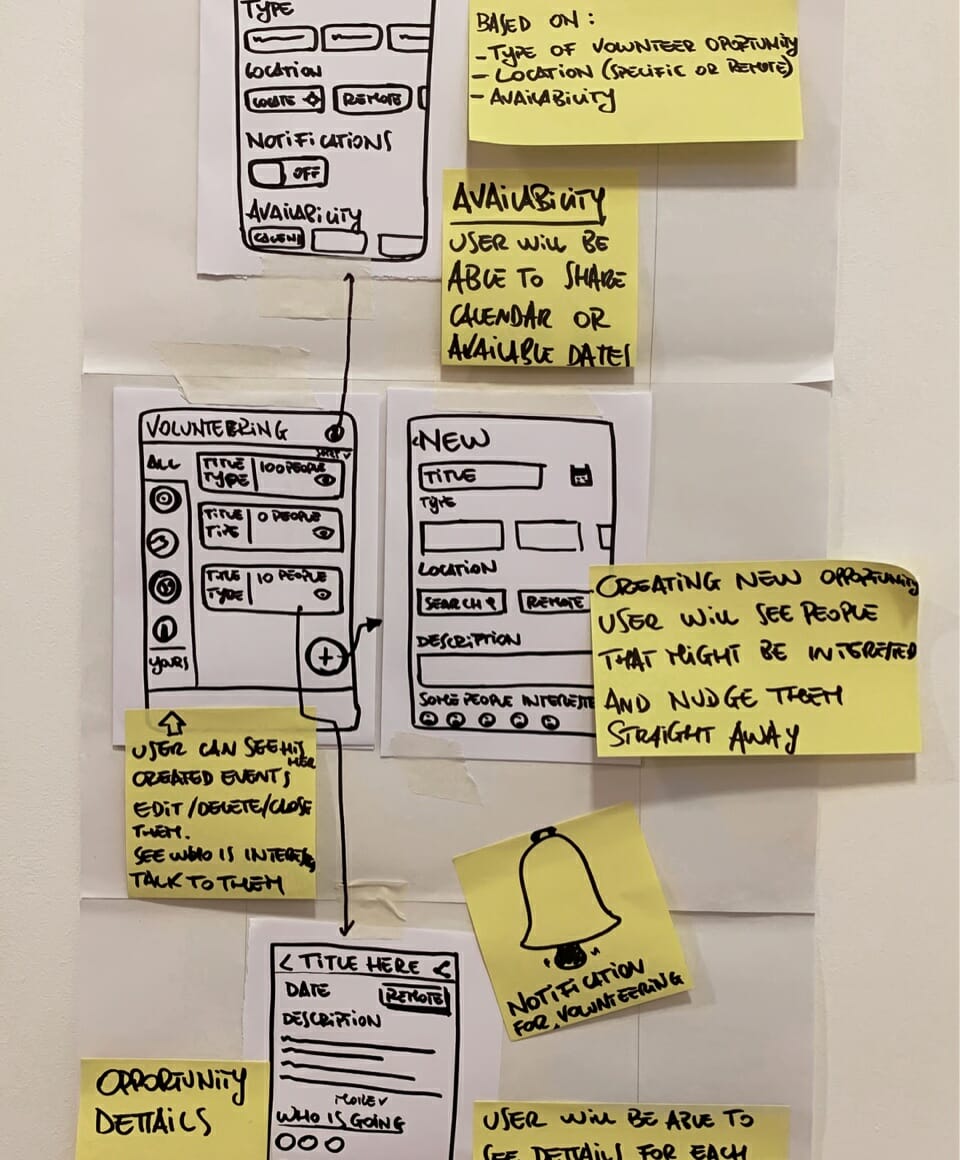 TYPE
LOCATION
LOCATE
REMOTE
NOTIFICATIONS
OFF
AVAILABILITY
CALEND
BASED ON:
- TYPE OF VOLUNTEER OPORTUNITY
- LOCATION (SPECIFIC OR REMOTE)
- AVAILABILITY
AVAILABILITY
USER WILL BE
ABLE TO SHARE
CALENDAR OR
AVAILABLE DATES
VOLUNTEERING
ALL
TITLE | 100 PEOPLE
TYPE
TITLE | 0 PEOPLE
TYPE
TITLE | 10 PEOPLE
TYPE
YOURS
+
<NEW
TITLE
TYPE
LOCATION
SEARCH
REMOTE
DESCRIPTION
SOME PEOPLE INTERESTE
CREATING NEW OPPORTUNITY
USER WILL SEE PEOPLE
THAT MIGHT BE INTERESTED
AND NUDGE THEM
STRAIGHT AWAY
USER CAN SEE HIS
HER
CREATED EVENTS
EDIT/DELETE/CLOSE
THEM.
SEE WHO IS INTERESTED
TALK TO THEM
NOTIFICATION
FOR VOLUNTEERING
< TITLE HERE <
DATE
REMOTE
DESCRIPTION
MORE
WHO IS GOING
OPPORTUNITY
DETTAILS
USER WILL BE ABLE TO
SEE DETTAILS FOR EACH